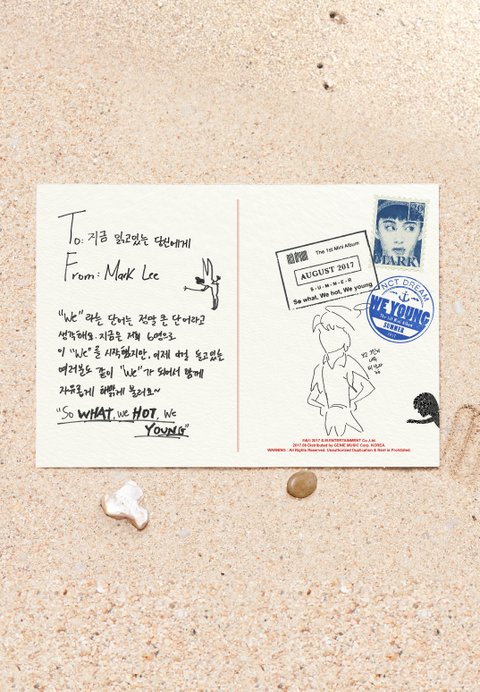 To: 지금 읽고있는 당신에게
From: Mark Lee
"We" 라는 단어는 정말 큰 단어라고
생각해요. 지금은 저희 6명으로
이 "We"를 시작했지만, 이제 바로 듣고있는
여러분도 같이 "We"가 되어서 함께
자유롭게 해맑게 불러요~
"So WHAT, We HOT, We
YOUNG"
The 1st Mini Album
AUGUST 2017
S·U·M·M·E·R
So what, We hot, We young
MARK
NCT DREAM
WE YOUNG
The 1st Mini Album
SUMMER
2017.08 Distributed by GENIE MUSIC Corp. KOREA.
WARNING : All Rights Reserved. Unauthorized Duplication & Rent is Prohibited.